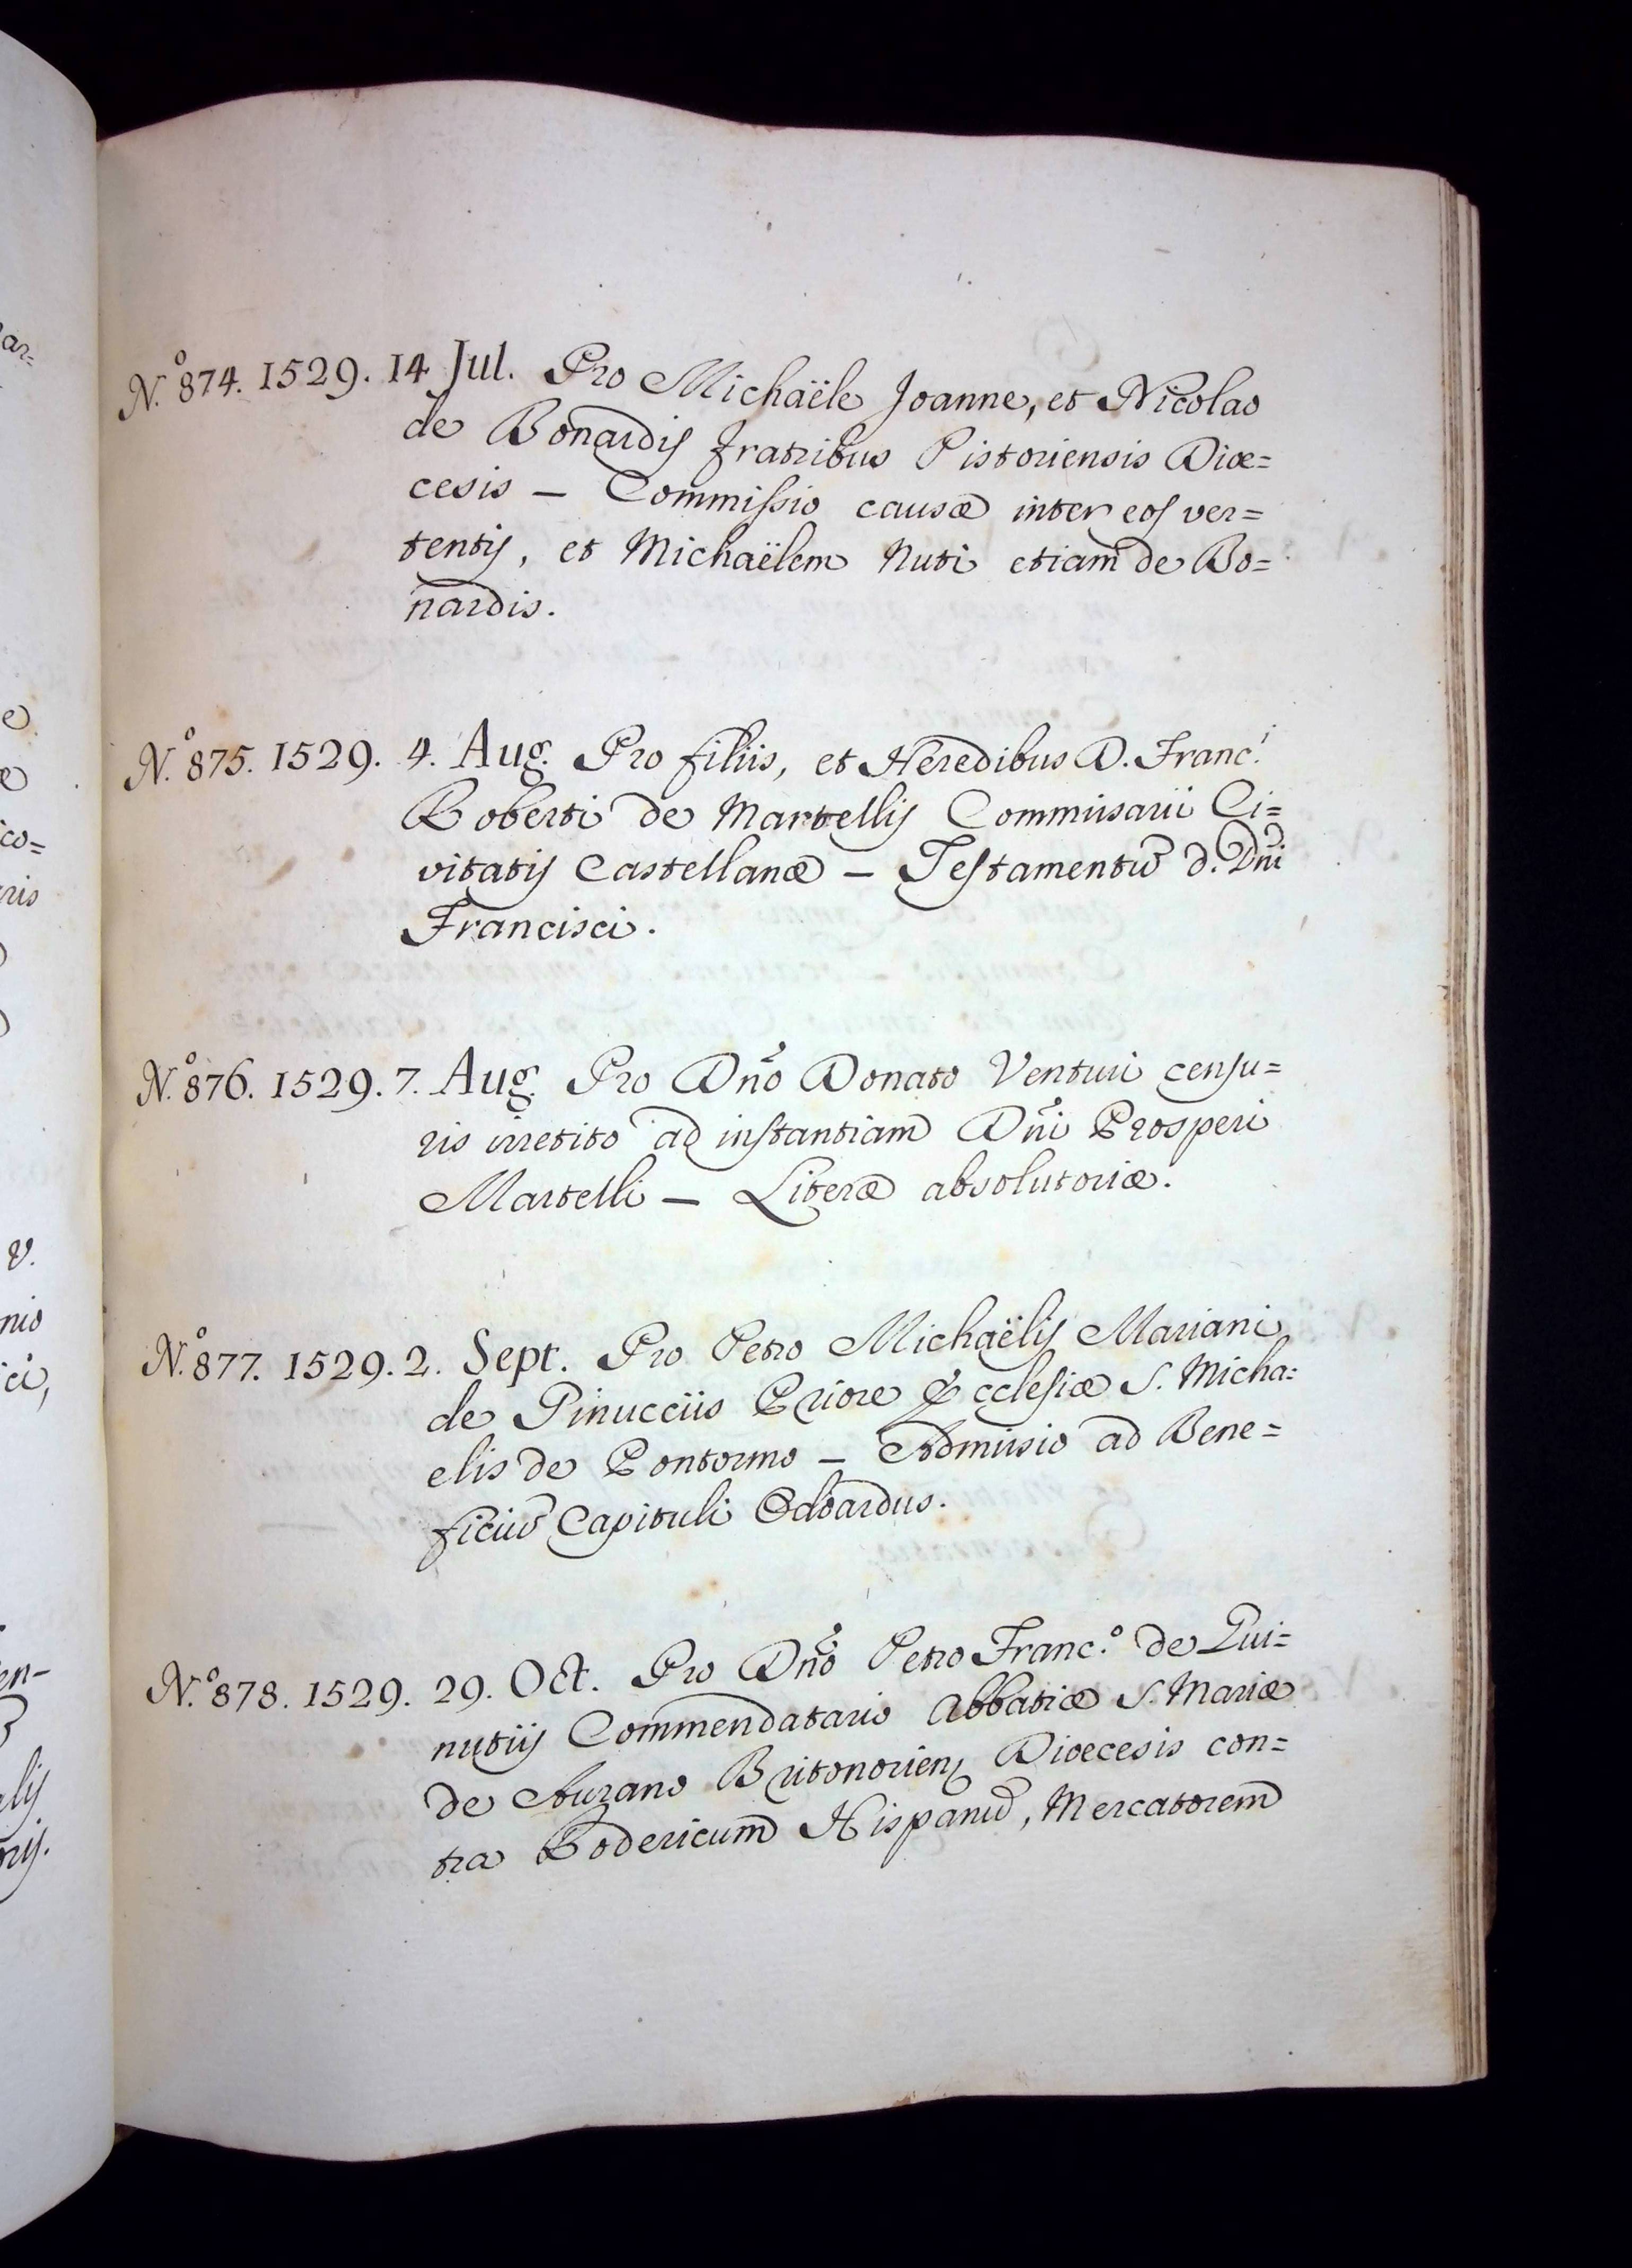 N.º 874. 1529. 14 Jul. Pro Michaële Joanne, et Nicolao
de Bonardis fratribus Pistoriensis Dioe=
cesis – Commissio causæ inter eos ver=
tentis, et Michaëlem Nuti etiam de Bo=
nardis.
N.º 875. 1529. 4. Aug. Pro filiis, et Heredibus D. Franc.i
Roberti de Martellis Commissarii Ci=
vitatis Castellanæ – Testamentũ d. Dñi
Francisci.
N.º 876. 1529. 7. Aug. Pro Dño Donato Venturi censu=
ris irretito ad instantiam Dñi Prosperi
Martelli – Literæ absolutoriæ.
N.º 877. 1529. 2. Sept. Pro Petro Michaëlis Mariani
de Pinucciis Priore Ecclesiæ S. Micha=
elis de Pontormo – Admissio ad Bene=
ficiũ Capituli
N.º 878. 1529. 29. Oct. Pro Dño Petro Franc.º de Qui=
nutiis Commendatario Abbatiæ S. Mariæ
de Britonorien. Dioecesis con=
tra Rodericum Hispanũ, Mercatorem